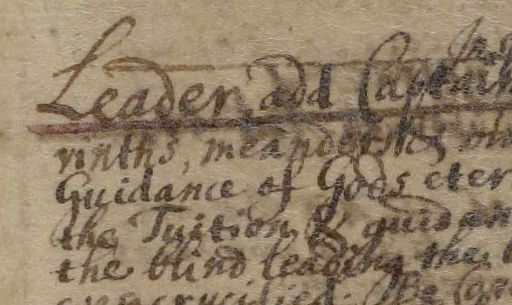 Leader, add Captain
rinths, meanders
Guidance of Gods eter
the Tuition & guidan
the blind leading the